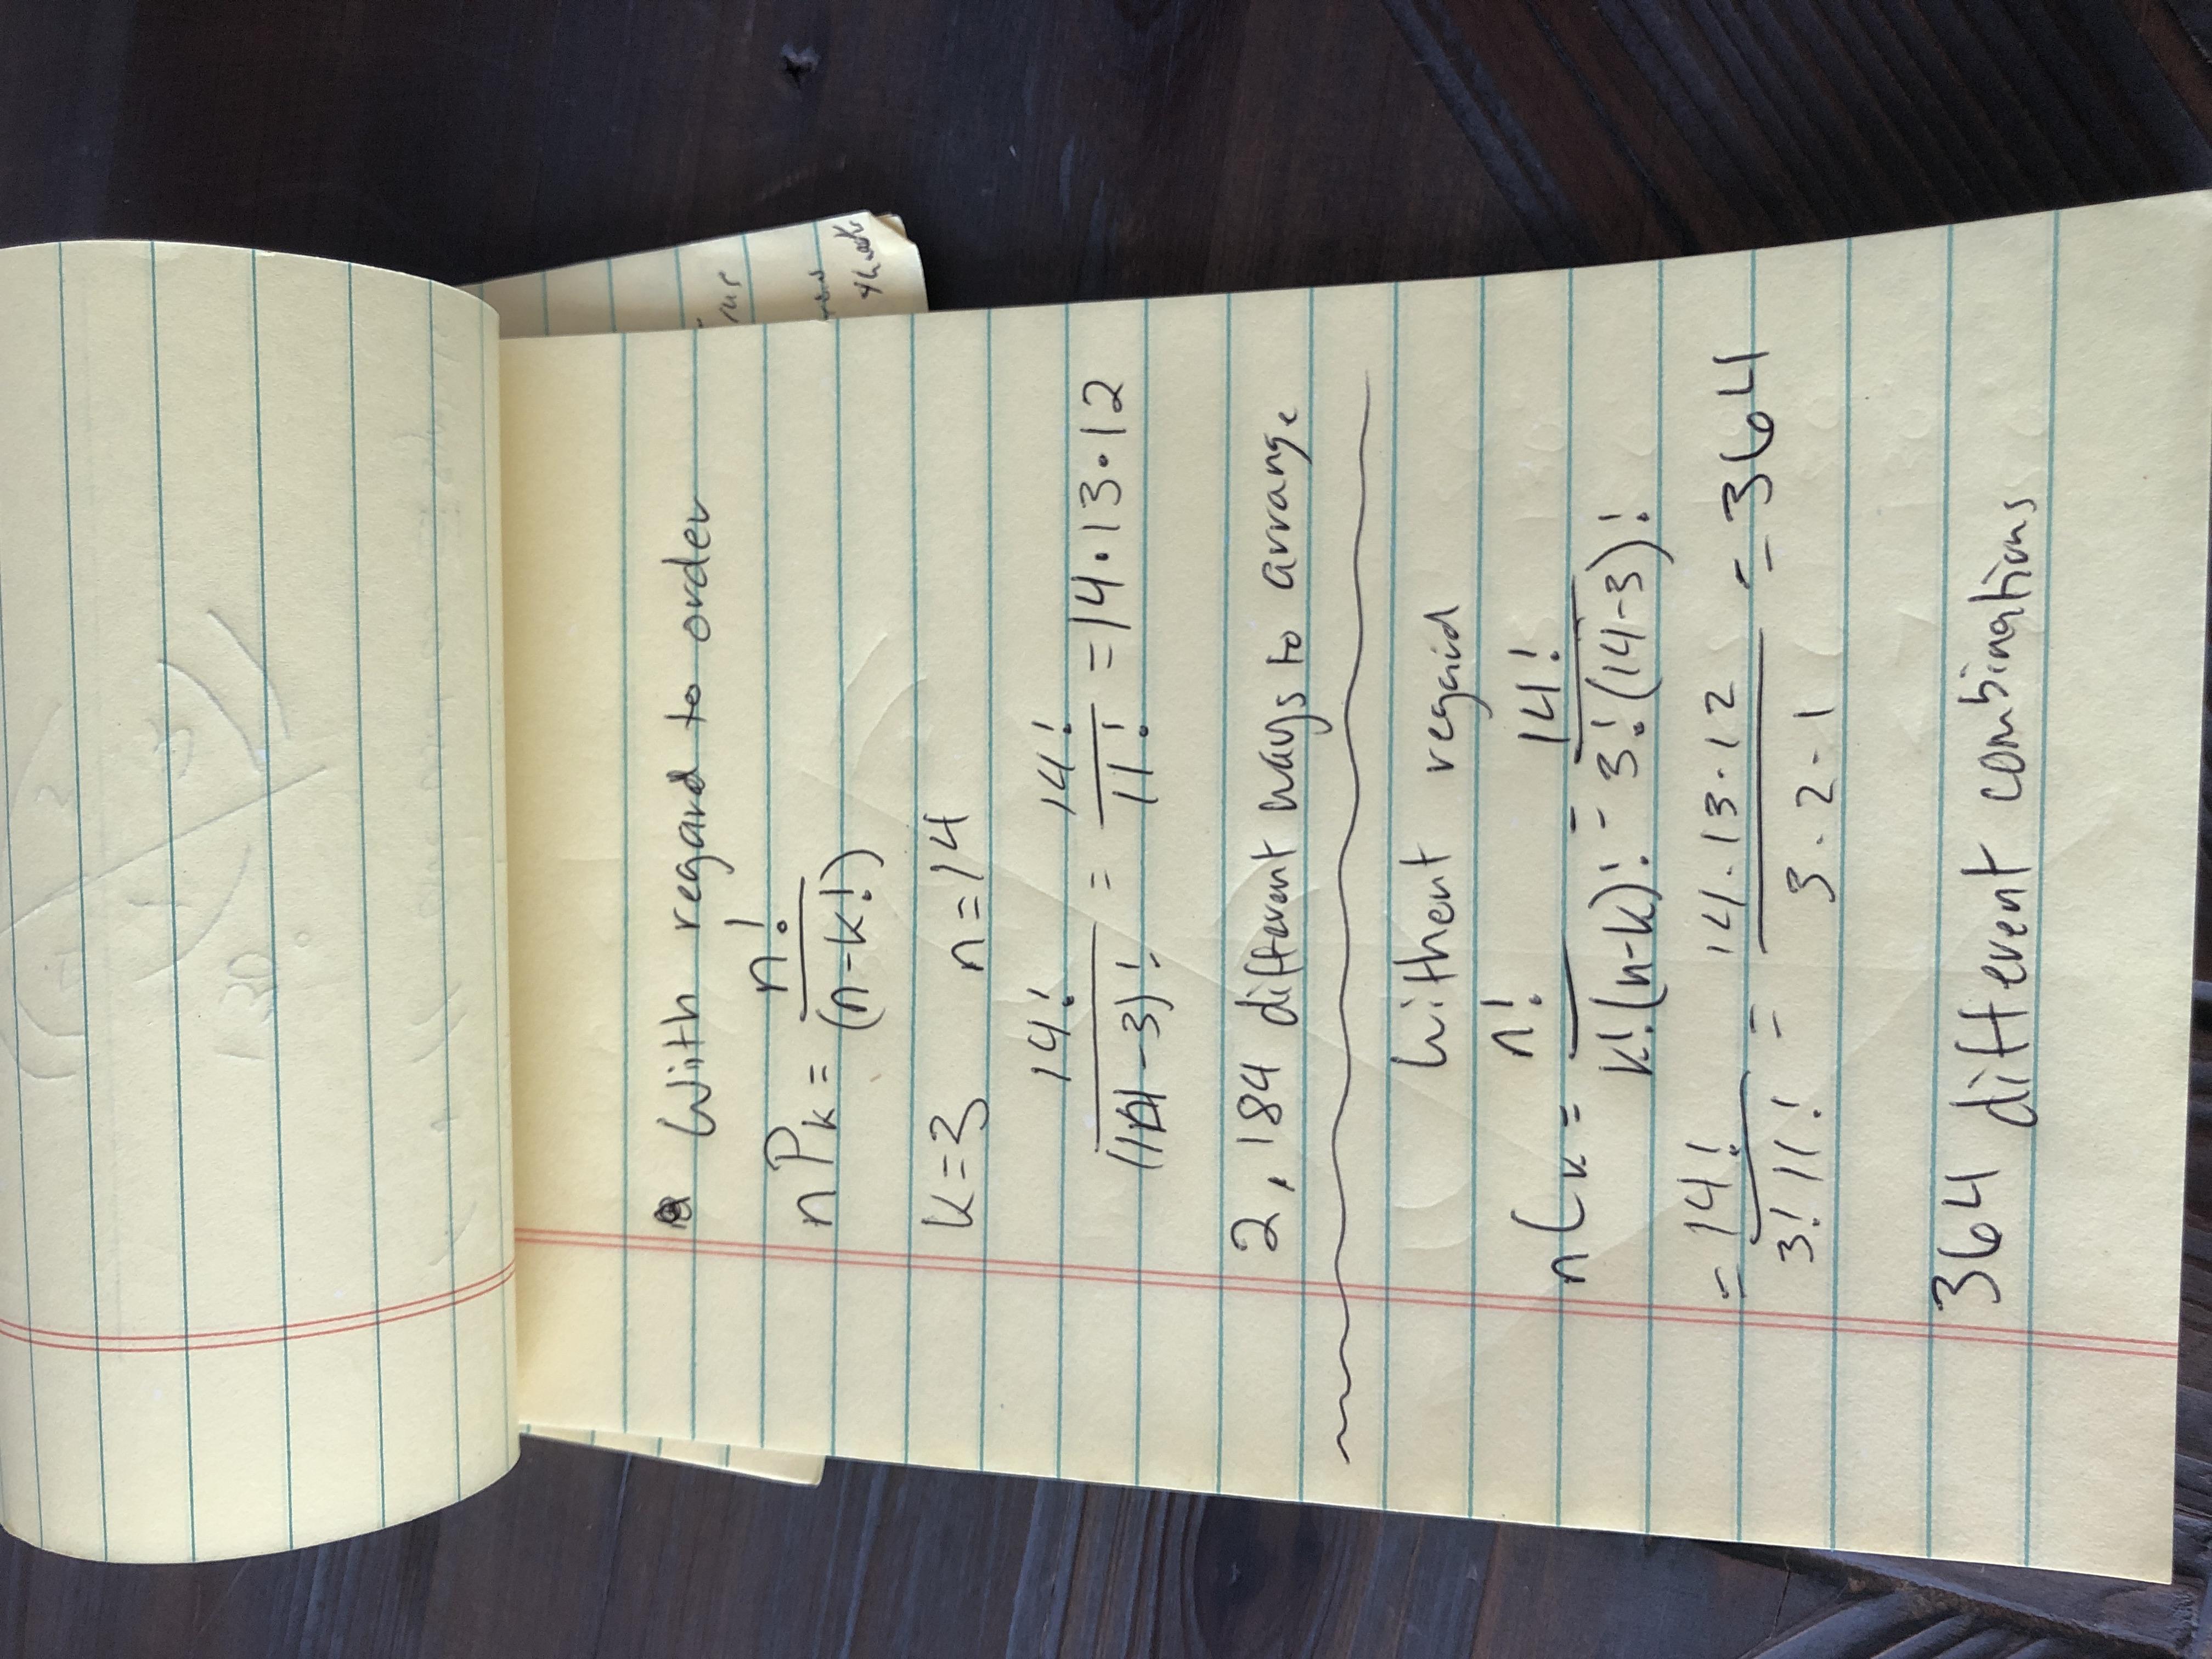 With regard to order
nPk = n! / (n-k!)
k=3 n=14
14! / (14-3)! = 14! / 11! = 14·13·12
2,184 different ways to arrange
Without regard
nCk = n! / k!(n-k)! = 14! / 3!(14-3)!
= 14! / 3!11! = 14·13·12 / 3·2·1 = 364
364 different combinations